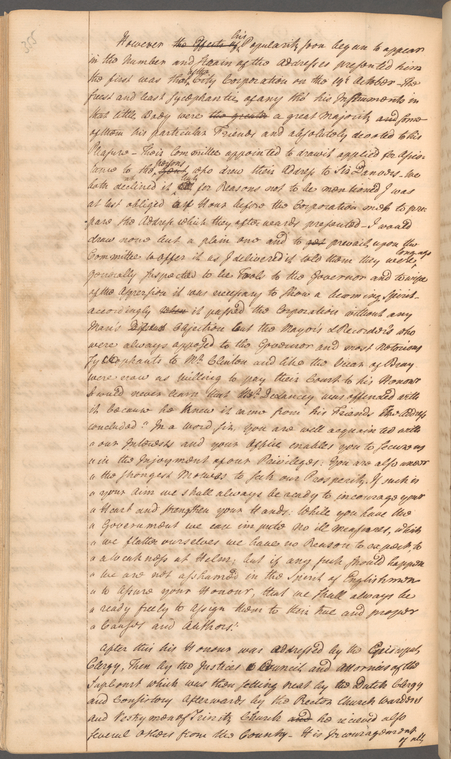 However the Effects of his Popularity soon began to appear
in the Number and Strain of the Addresses presented him
the first was that of the City Corporation on the 14th October - the
first and least Sycophantic of any tho' his Instruments in
that little Body were the greater a great Majority and some
of them his particular Friends and absolutely devoted to his
Pleasure - Their Committee appointed to draw it applied for Assis
tance to the persons who drew their Address to Sr Danvers. We
both declined it but for Reasons not to be mentioned I was
at last obliged Hours before the Corporation met to pre
pare the Address which they afterwards presented - I would
draw none but a plain one and to prevail upon the
Committee to offer it as I delivered it told them they were
generally suspected to be Tools to the Governor and to wipe
off the Aspersion it was necessary to show a becoming Spirit.
accordingly when it passed the Corporation without any
Man's Objection but the Mayor's & Recorder's who
were always opposed to the Governor and most notorious
Sycophants to Mr Clinton and like the Vicar of Bray
were now as willing to pay their Court to his Honour
I would never learn that Mr Delancey was offended with
it because he knew it came from his Friends the Address
concluded "In a word Sir, you are well acquainted with
" our Interests and your Office enables you to secure us
" in the Enjoyment of our Privileges. You are also under
" the strongest Motives to seek our Prosperity. If such is
" your Aim we shall always be ready to incourage your
" Heart and strengthen your Hands. While you have the
" Government we can impute no ill Measures, which
" we flatter ourselves we have no Reason to expect to
" a Weakness at Helm; but if any such should happen
" we are not ashamed in the Spirit of Englishmen
" to assure your Honour, that we shall always be
" ready freely to assign them to their true and proper
" Causes and Authors."
After this his Honour was addressed by the Episcopal
Clergy, Then by the Justices & Council and Attornies of the
Sup Court which was then setting next by the Dutch Clergy
and Consistory afterwards by the Rector Church wardens
and Vestrymen of Trinity Church and he recieved also
several others from the County - His Incouragement
of all